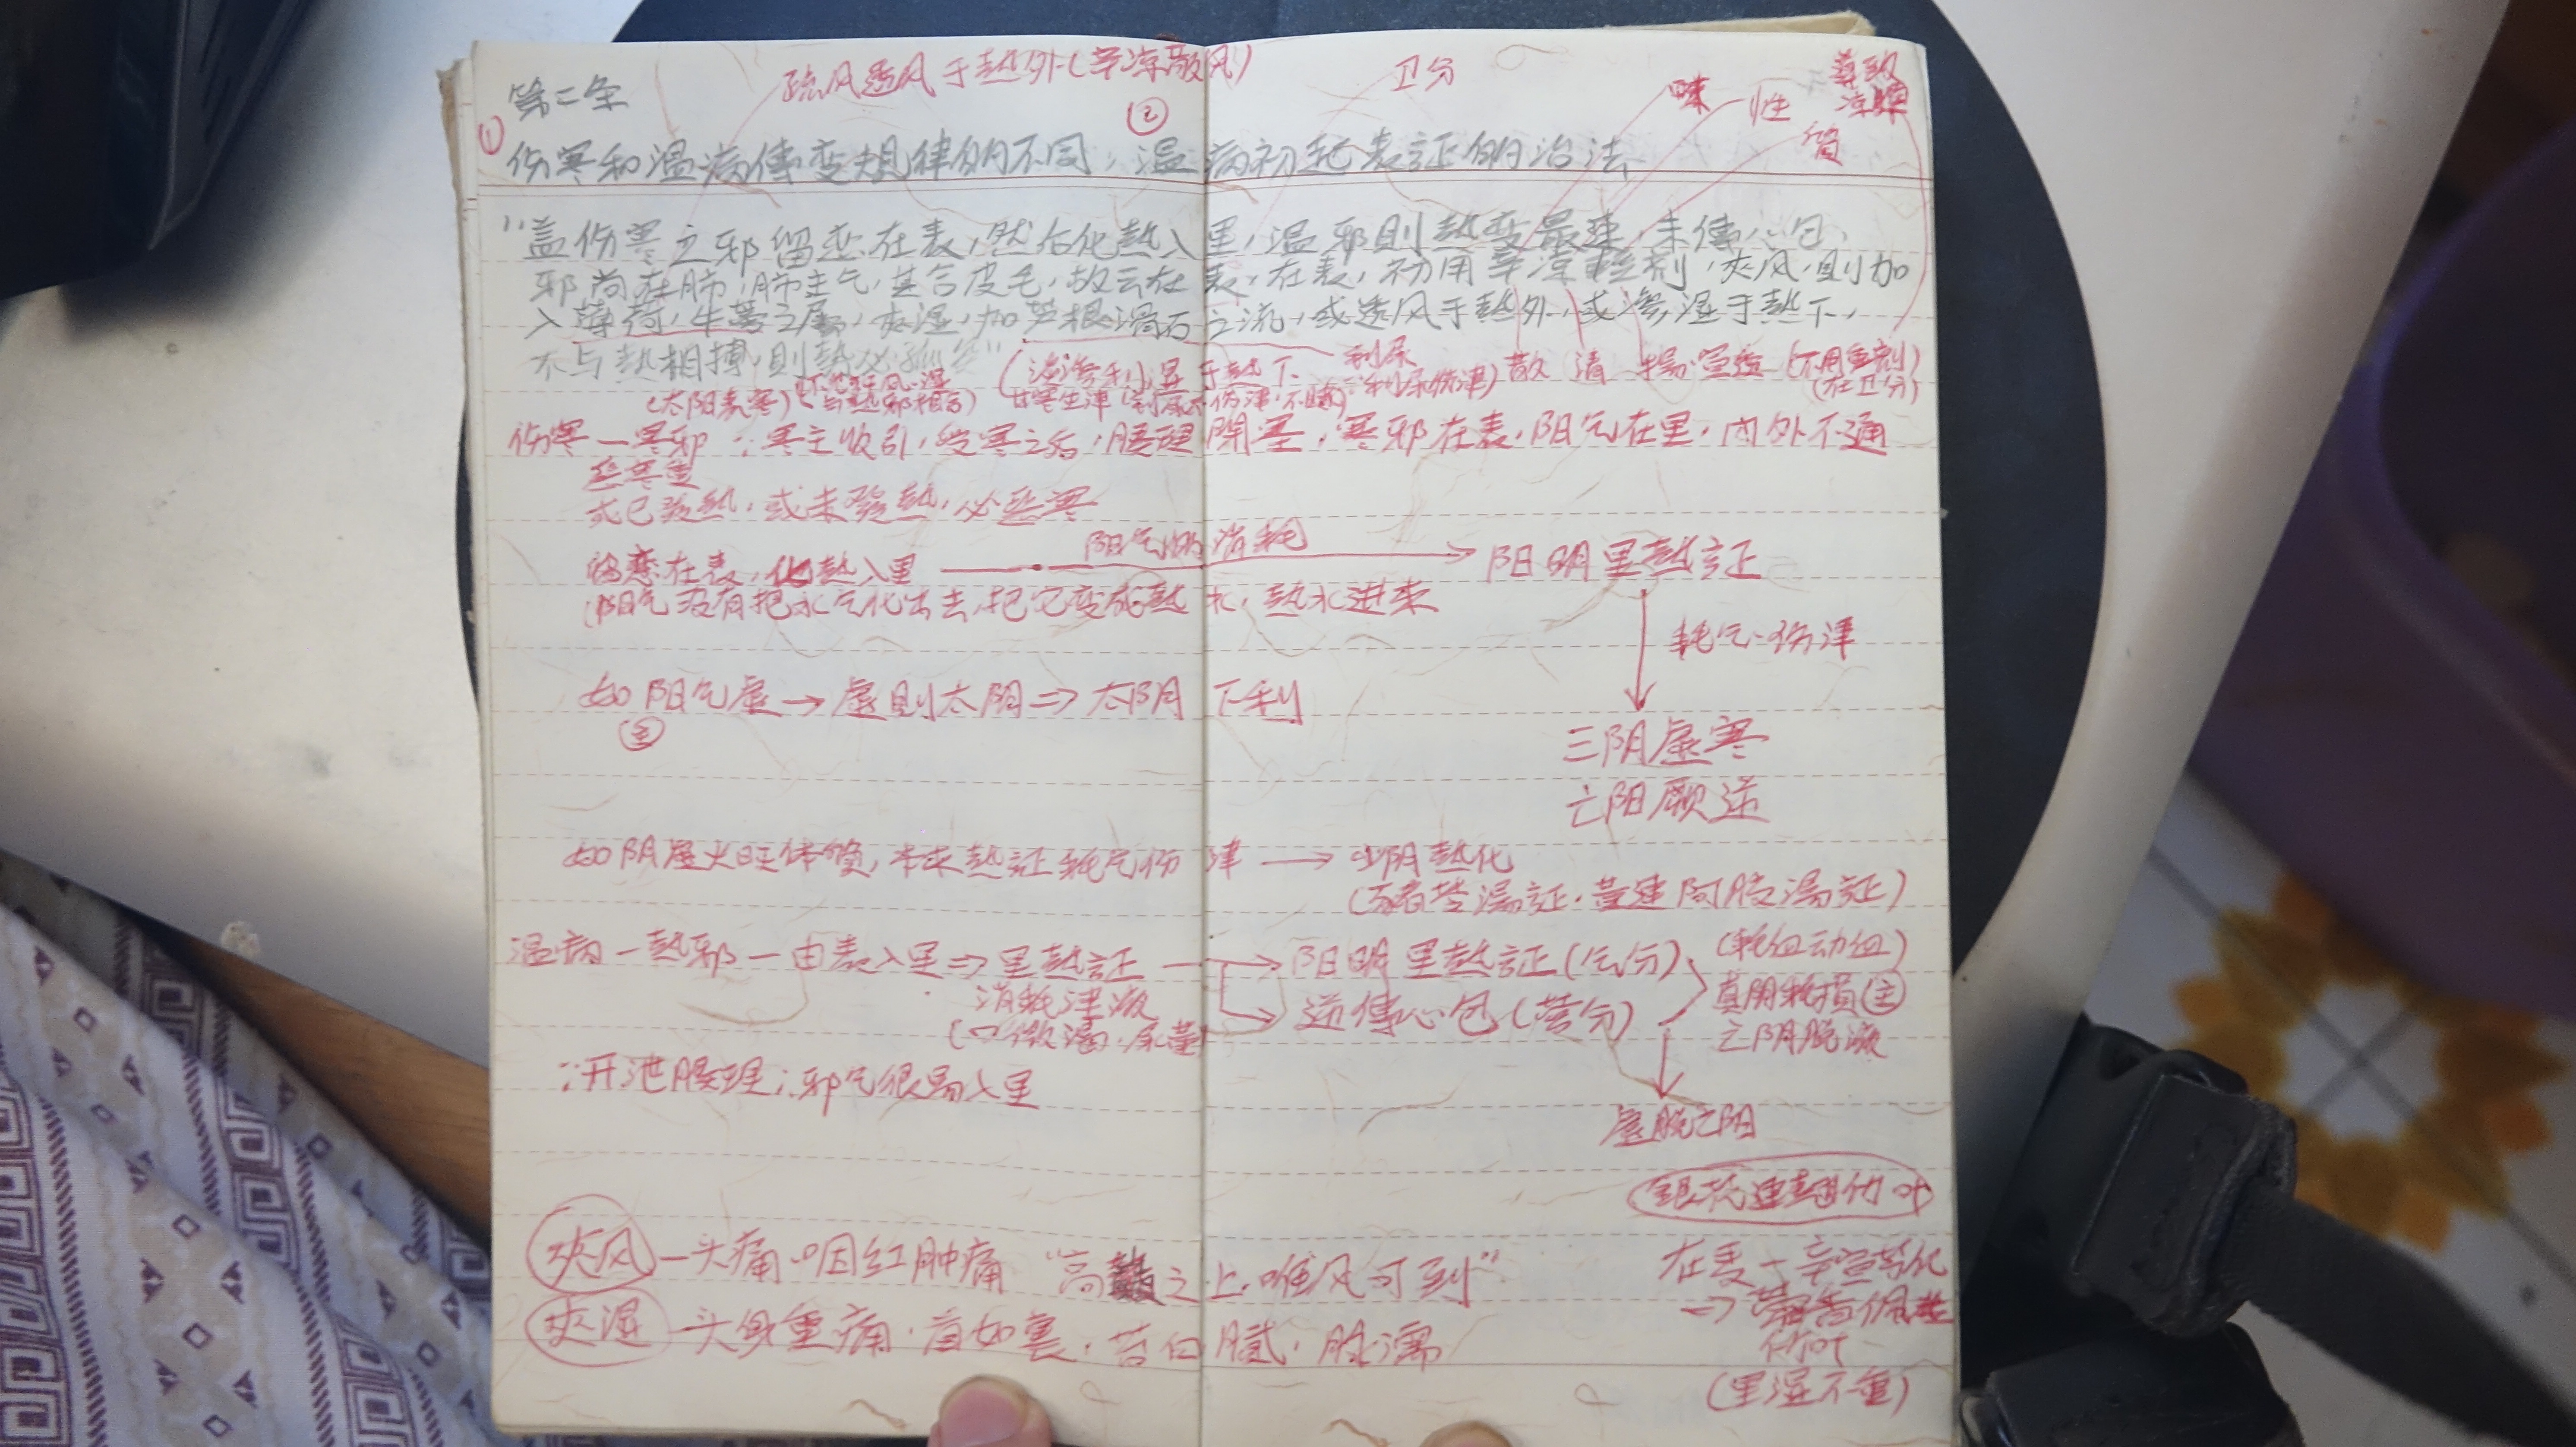 疏风透风于热外(辛凉散风)
卫分
第二条
味 性 质
① ②
伤寒和温病傳变規律的不同,温病初起表証的治法
“盖伤寒之邪留恋在表,然后化熱入里,温邪则熱变最速,未傳心包,
邪尚在肺,肺主气,其合皮毛,故云在表,在表,初用辛凉輕剂,夾风,则加
入薄荷,牛蒡之属,夾湿,加芦根滑石之流,或透风于熱外,或滲湿于熱下,
不与熱相搏,则熱必孤矣”
(淡滲利湿于熱下 利尿
散 清 揚 宣 (不用重剂)
(太阳表寒) 与熱邪相合) 甘寒生津 利尿伤津) (在卫分)
伤寒—寒邪 ∵寒主收引,受寒之后,腠理閉塞,寒邪在表,阳气在里,内外不通
恶寒重
或已發熱,或未發熱,必恶寒
留恋在表,化熱入里 阳气的消耗 → 阳明里熱証
(阳气没有把水气化出去,把它变成熱水,熱水进来
↓ 耗气·伤津
如阳气虚→虚则太阴⇒太阴下利
三阴虚寒
亡阳厥逆
如阴虚火旺体質,本来熱証耗气伤津 → 少阴熱化
(猪苓湯証·黃連阿胶湯証)
温病—熱邪—由表入里⇒里熱証 → 阳明里熱証(气分) (耗血动血)
消耗津液 逆傳心包(营分) 真阴耗損(主)
(口微渴·尿黃) 亡阴脱液
∵开泄腠理∴邪气很易入里
虚脱亡阳
夾风—头痛·咽红肿痛 “高巅之上,唯风可到”
在表—辛宣芳化
夾湿—头身重痛·首如裹·苔白腻·脉濡
→藿香佩兰
(里湿不重)